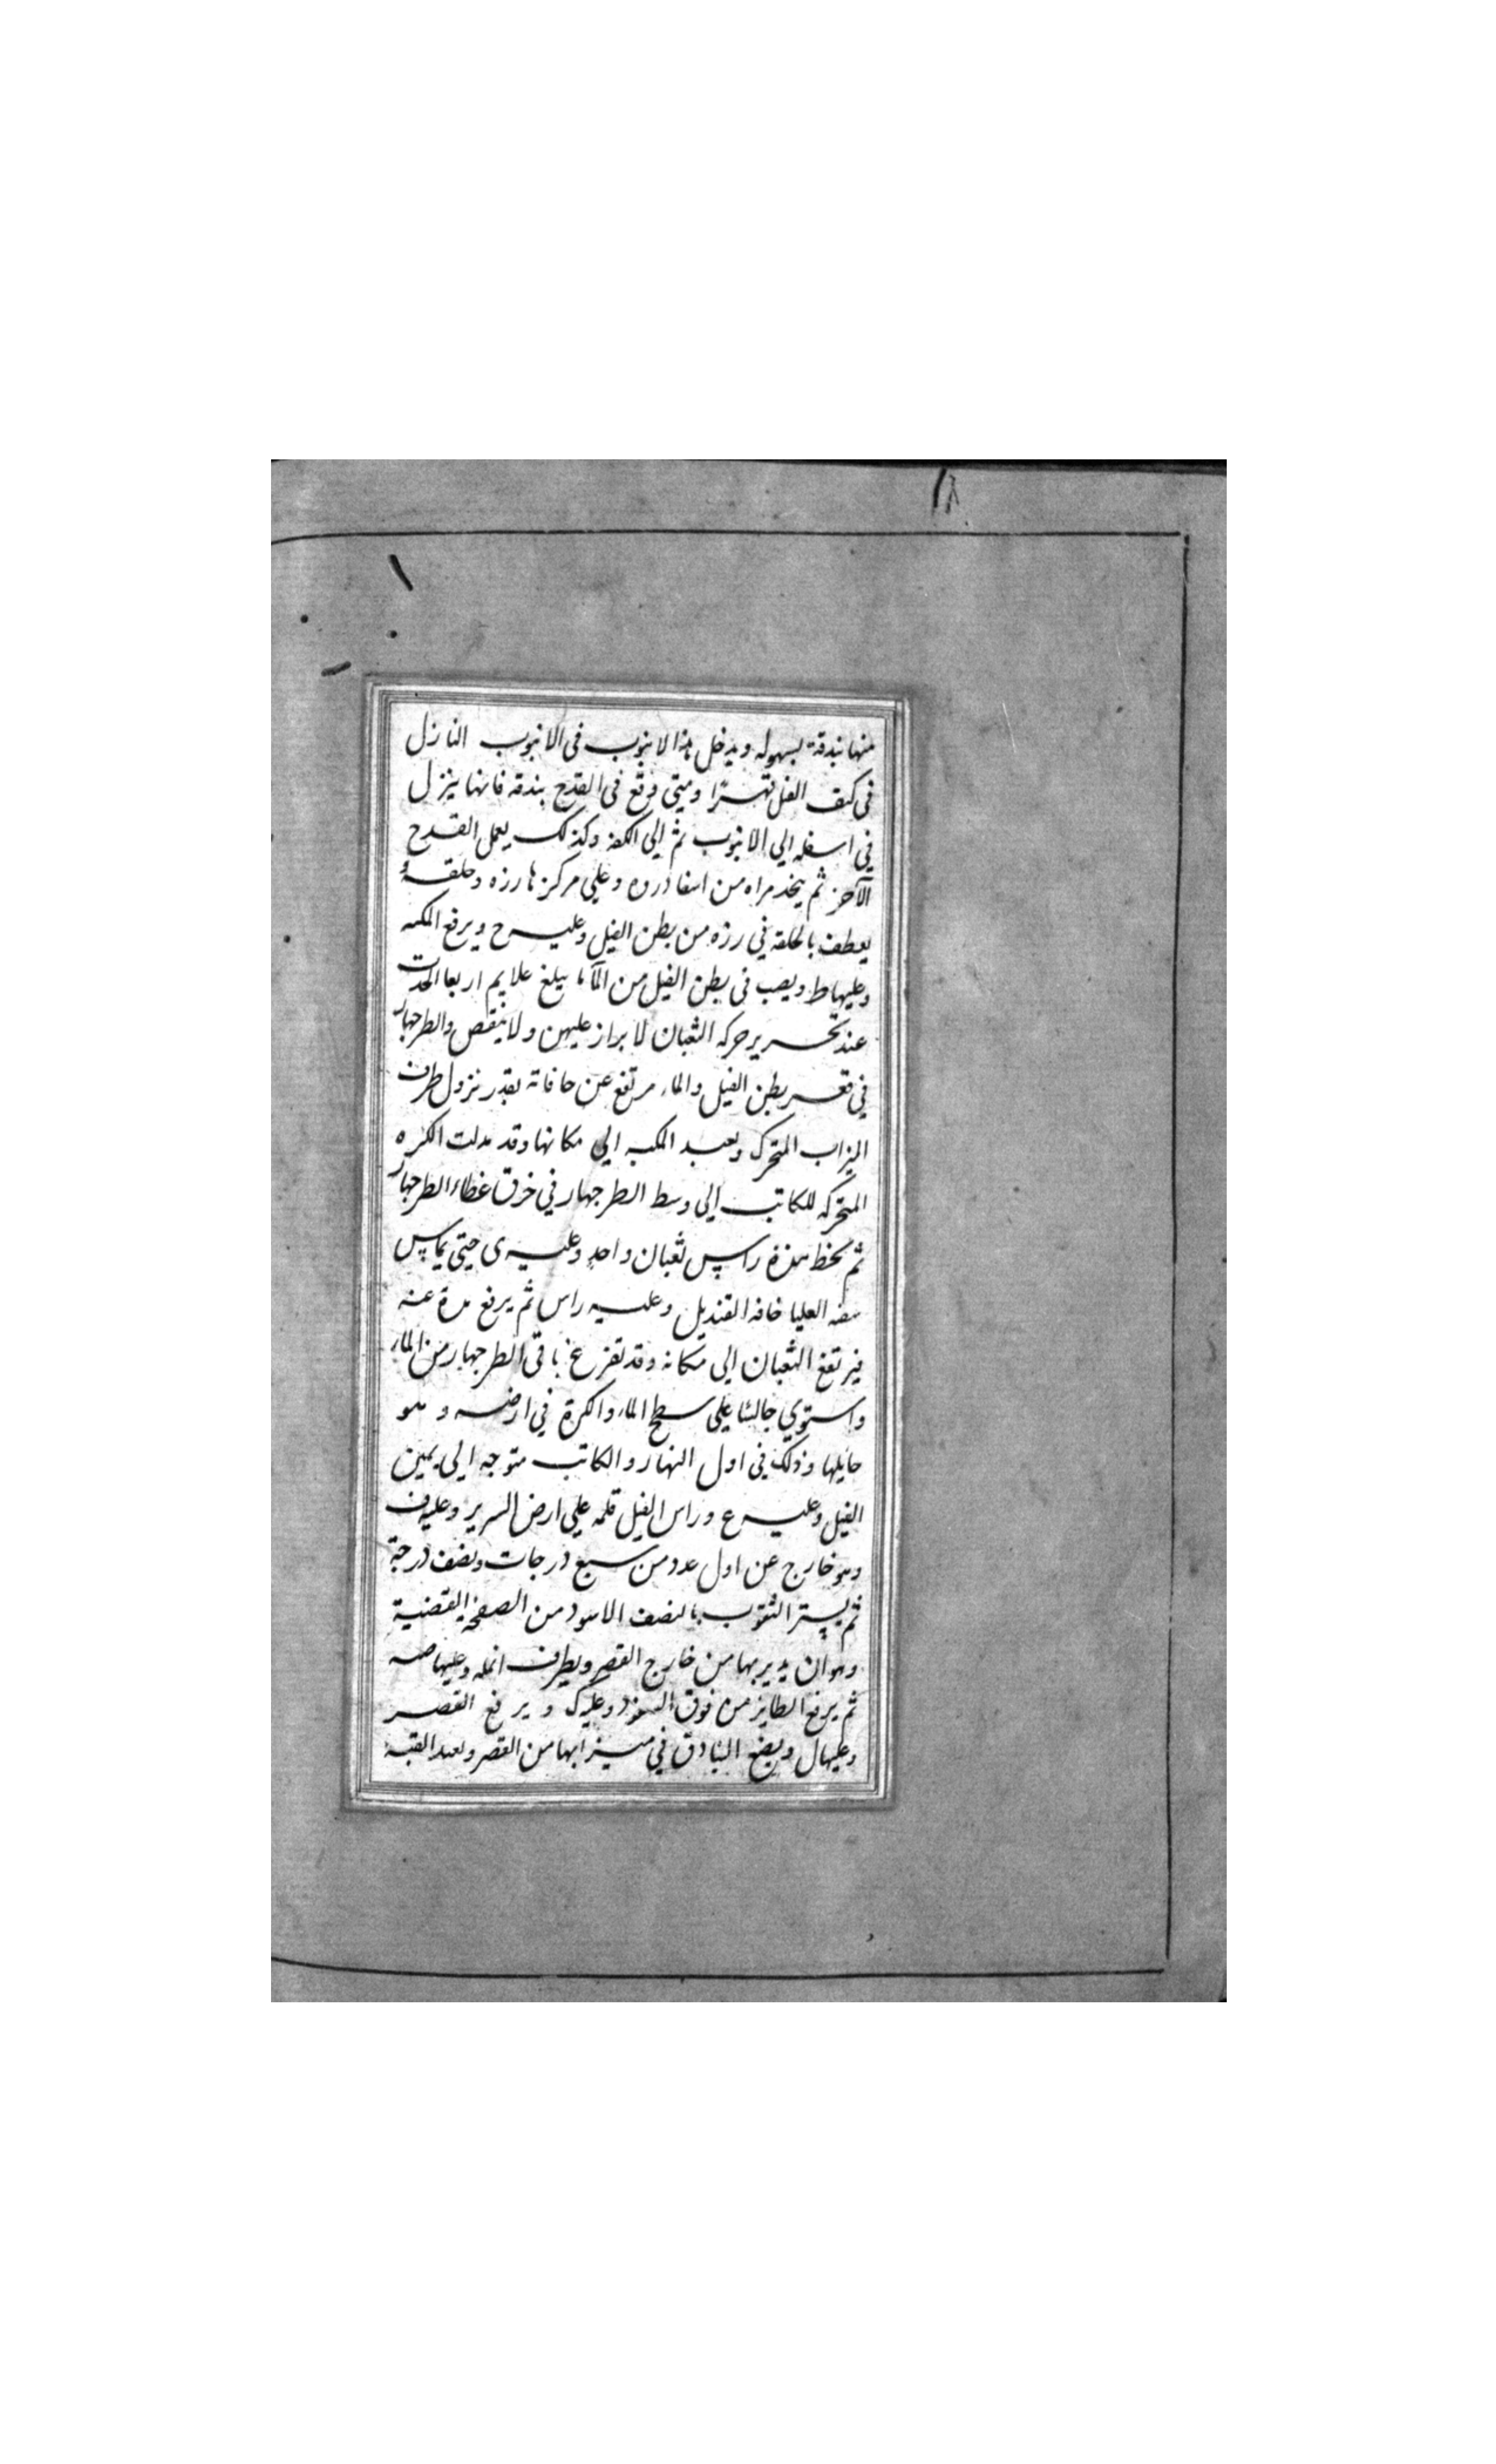 منها بندقة بسهوله ويدخل هذا الانبوب فى الانبوب النازل
فى كتف الفيل قهرًا ومتى وقع فى القدح بندقه فانها ينزل
فى اسفله الى الانبوب ثم الى الكفه وكذلك يعمل القدح
الآخر ثم يتخذ مراه من اسفادروه وعلى مركزها رزه وحلقه و
يعطف بالحلقه فى رزه من بطن الفيل وعليه ح ويرفع المكبه
وعليها ط ويصب فى بطن الفيل من المآ ما يبلغ علايم اربعا اتحدت
عند تحرير حركه الثعبان لا يزاد عليهن ولا ينقص والطرجهار
فى قعر بطن الفيل والماء مرتفع عن حافاته بقدر نزول طرف
الميزاب المتحرك ويعيد المكبه الى مكانها وقد مدلت الكره
المتحركه للكاتب الى وسط الطرجهار فى خرق غطاء الطرجهار
ثم يحط بيده راس ثعبان واحد وعليه ى حتى يماس
شفه العليا حافه القنديل وعليه راس ثم يرفع يده عنه
فيرتفع الثعبان الى مكانه وقد تفرغ باقى الطرجهار من الماء
واستوى جالسا على سطح الماء والكرة فى ارضه وهو
حايلها وذلك فى اول النهار والكاتب متوجه الى يمين
الفيل وعليه ع وراس الفيل قلمه على ارض السرير وعليه ف
وهو خارج عن اول عدد من سبع درجات ونصف درجة
ثم يستر الثقوب بالنصف الاسود من الصفحه الفضية
وهو ان يديرها من خارج القصر وبطرف انمله وعليها صه
ثم يرفع الطاير من فوق السفود وعليه ك ويرفع القصر
وعليها ل ويضع البنادق فى ميزابها من القصر ويعيد القبه